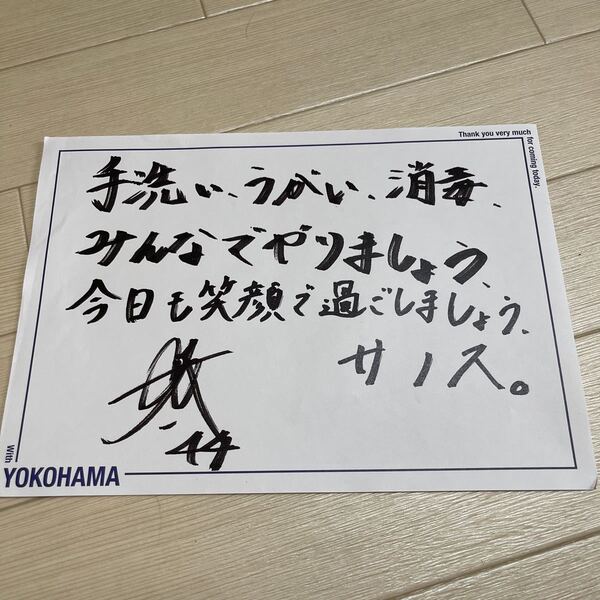 Thank you very much
for coming today.
手洗い、うがい、消毒、
みんなでやりましょう、
今日も笑顔で過ごしましょう、
サノス。
44
With
YOKOHAMA